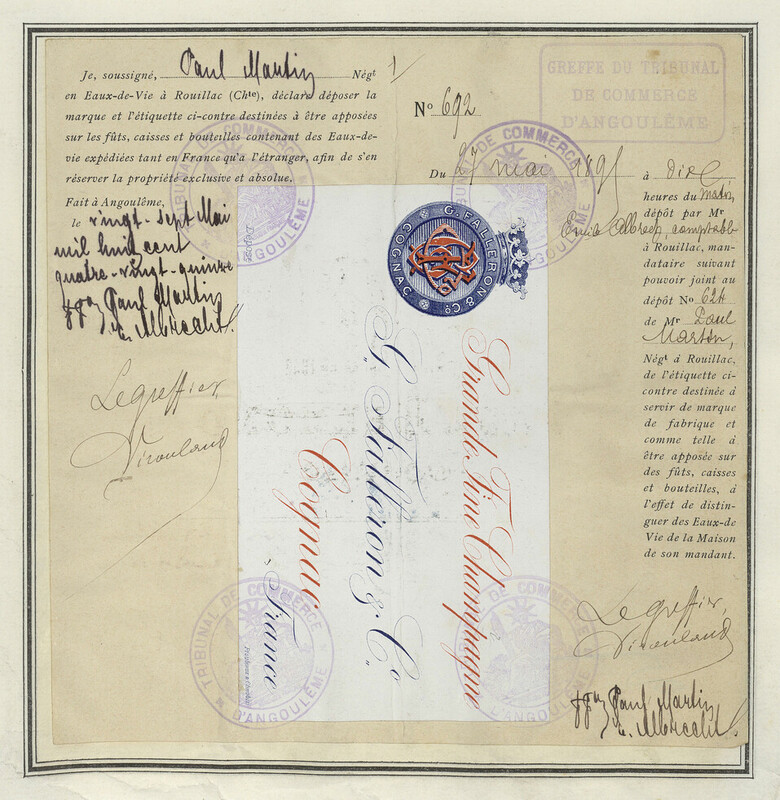 Je, soussigné, Paul Martin Négt
en Eaux-de-Vie à Rouillac (Chte), déclare déposer la
marque et l'étiquette ci-contre destinées à être apposées
sur les fûts, caisses et bouteilles contenant des Eaux-de-
vie expédiées tant en France qu'à l'étranger, afin de s'en
réserver la propriété exclusive et absolue.
Fait à Angoulême,
le vingt-sept Mai
mil huit cent
quatre-vingt-quinze
ppon Paul Martin
E. Albrecht
Le greffier,
1
No 692
GREFFE DU TRIBUNAL
DE COMMERCE
D'ANGOULÊME
Du 27 mai 1895 à dix
heures du matin,
dépôt par Mr
Emile Albrecht, comptable
à Rouillac, man-
dataire suivant
pouvoir joint au
dépôt No 624
de Mr Paul
Martin,
Négt à Rouillac,
de l'étiquette ci-
contre destinée à
servir de marque
de fabrique et
comme telle à
être apposée sur
des fûts, caisses
et bouteilles, à
l'effet de distin-
guer des Eaux-de
Vie de la Maison
de son mandant.
Le greffier,
ppon Paul Martin
E. Albrecht
G. FALLERON & Co
COGNAC
Déposé
Grande Fine Champagne
G. Falleron & Co
Cognac
France
TRIBUNAL DE COMMERCE
D'ANGOULÊME
TRIBUNAL DE COMMERCE
D'ANGOULÊME
TRIBUNAL DE COMMERCE
D'ANGOULÊME
TRIBUNAL DE COMMERCE
D'ANGOULÊME